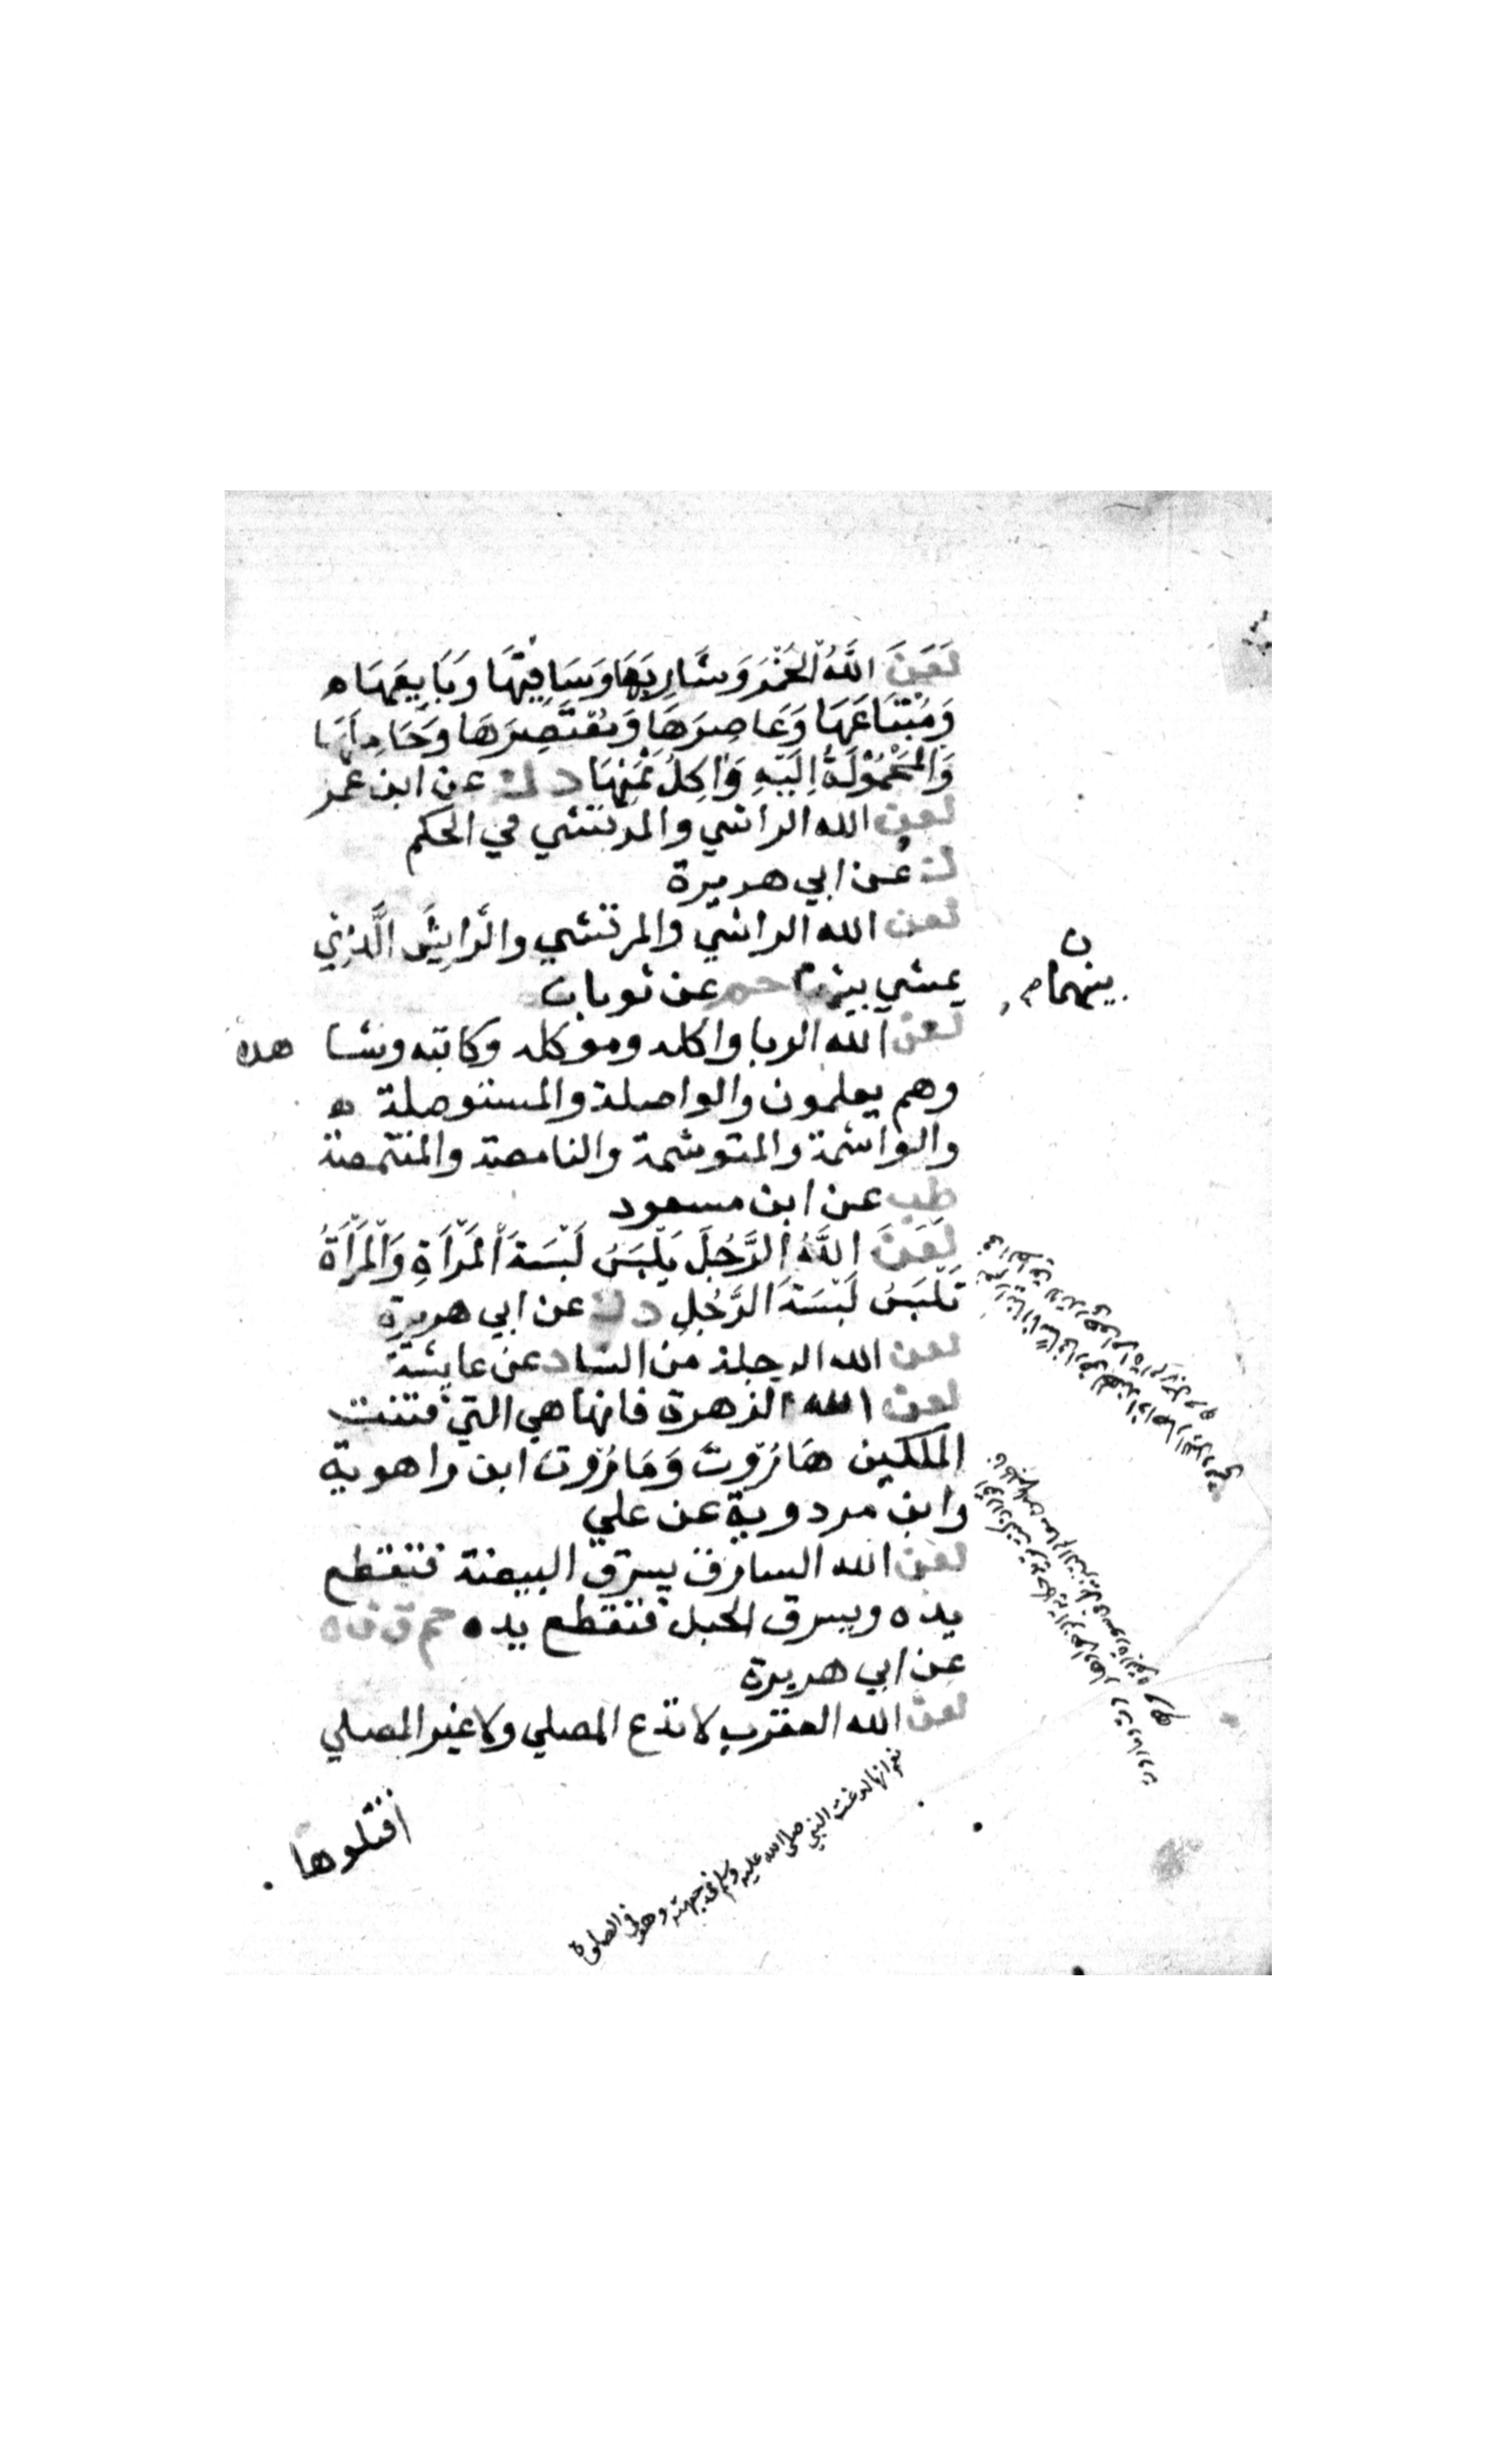 لَعَنَ اللَّهُ الْخَمْرَ وَشَارِبَهَا وَسَاقِيَهَا وَبَايِعَهَا ه
وَمُبْتَاعَهَا وَعَاصِرَهَا وَمُعْتَصِرَهَا وَحَامِلَهَا
وَالْمَحْمُوْلَةُ اِلَيْهِ وَاٰكِلُ ثَمَنِهَا د ك عن ابن عمر
لعن الله الراشي والمرتشي في الحكم
ك عن ابي هريرة
لعن الله الراشي والمرتشي والرَّايِشَ الَّذِي
يمشي بينهما حم عن ثوبان
بينهما
لعن الله الربا واكله وموكله وكاتبه وشا هده
وهم يعلمون والواصلة والمستوصلة ه
والواشمة والمتوشمة والنامصة والمنتمصة
طب عن ابن مسعود
لَعَنَ اللَّهُ الرَّجُلَ يَلْبَسُ لَبْسَةَ الْمَرْاَةِ وَالْمَرْاَةُ
تَلْبَسُ لَبْسَةَ الرَّجُلِ د ك عن ابي هريرة
لعن الله الرجلة من النسا د عن عايشة
لعن الله الزهرة فانها هي التي فتنت
الملكين هَارُوتَ وَمَارُوتَ ابن راهوية
وابن مردوية عن علي
لعن الله السارق يسرق البيضة فتقطع
يده ويسرق الحبل فتقطع يده حم ق ن ه
عن ابي هريرة
لعن الله العقرب لا تدع المصلي ولا غير المصلي
اقتلوها
لدغت النبي صلى الله عليه وسلم في وهو في الصلوة